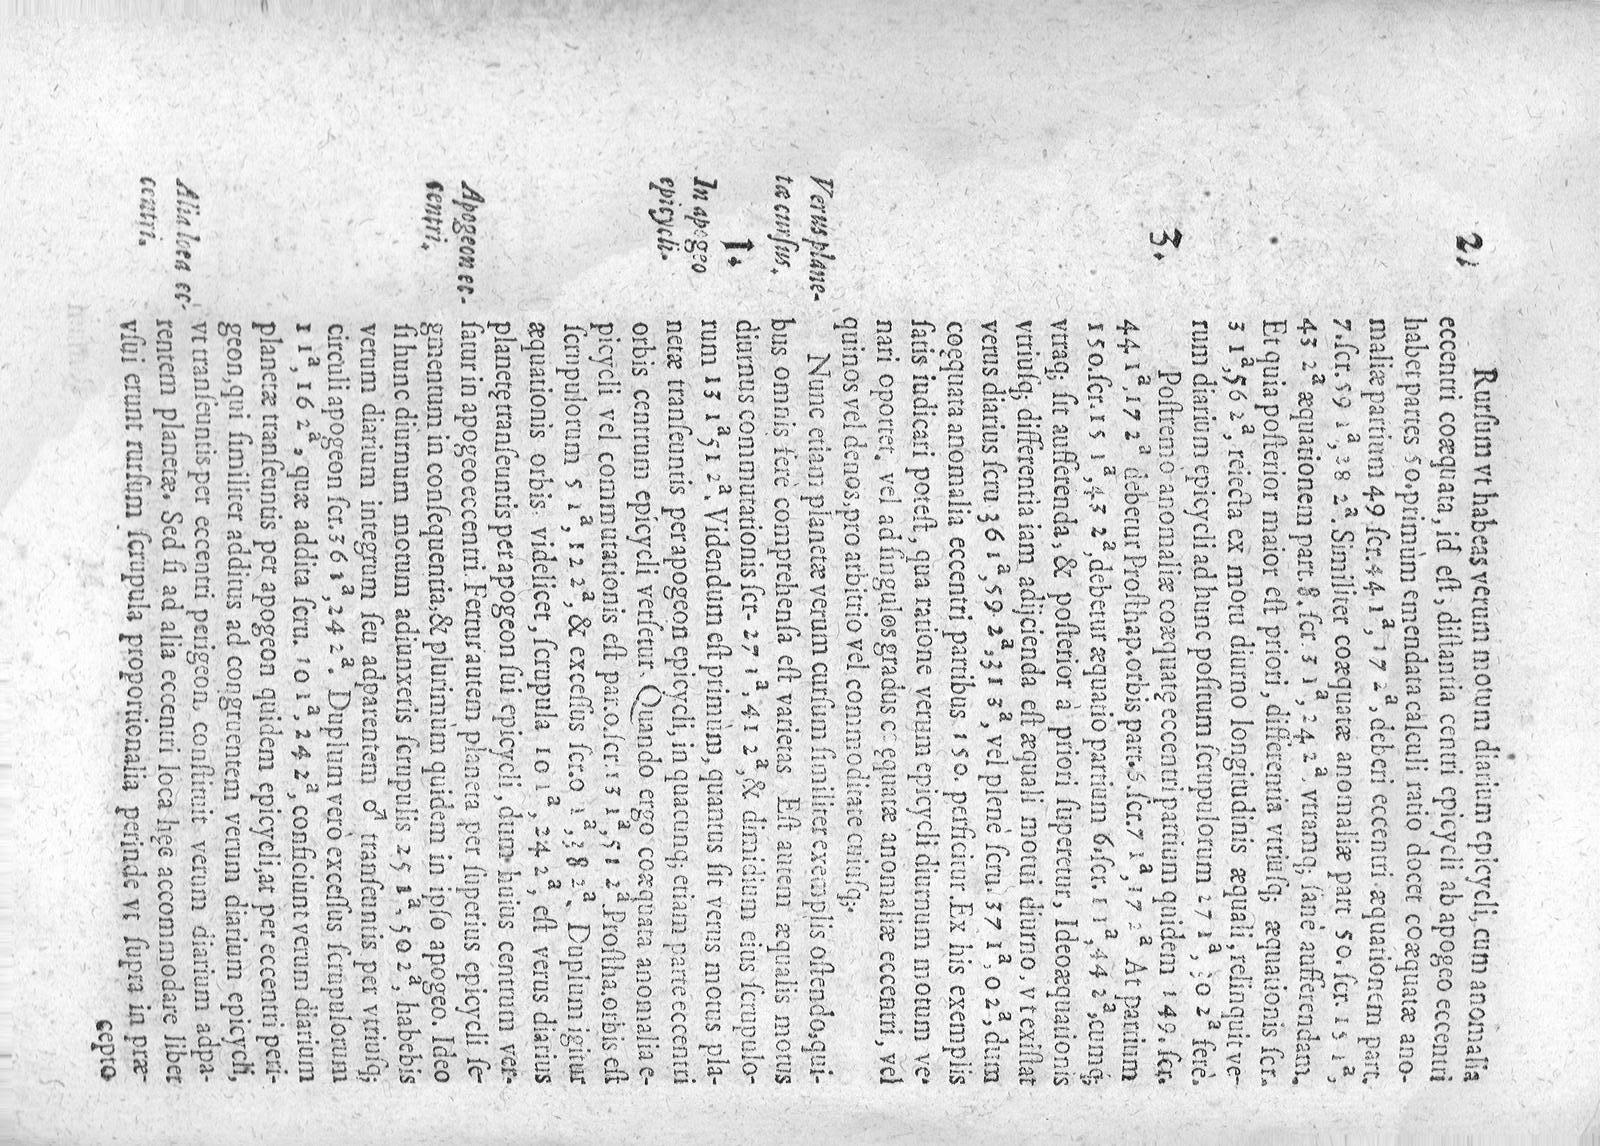 2.
Rurſum vt habeas verum motum diarium epicycli, cum anomalia
eccentri coæquata, id eſt, diſtantia centri epicycli ab apogeo eccentri
habet partes 50. primùm emendata calculi ratio docet coæquatæ ano-
maliæ partium 49. ſcr. 44 1ª, 17 2ª, deberi eccentri æquationem part.
7. ſcr. 59 1ª, 38 2ª. Similiter coæquatæ anomaliæ part 50. ſcr. 15 1ª,
43 2ª æquationem part. 8. ſcr. 3 1ª, 24 2ª. vtramq; ſanè aufferendam.
Et quia poſterior maior eſt priori, differentia vtriuſq; æquationis ſcr.
3 1ª, 56 2ª, reiecta ex motu diurno longitudinis æquali, relinquit ve-
rum diarium epicycli ad hunc poſitum ſcrupulorum 27 1ª, 30 2ª ferè.
3.
Poſtremo anomaliæ coæquatę eccentri partium quidem 149. ſcr.
44. 1ª, 17 2ª debetur Proſthap. orbis part. 5. ſcr. 7 1ª, 17 2ª At partium
150. ſcr. 15 1ª, 43 2ª, debetur æquatio partium 6. ſcr. 11ª, 44 2ª, cumq;
vtraq; ſit aufferenda, & poſterior à priori ſuperetur, Ideo æquationis
vtriuſq; differentia iam adijcienda eſt æquali motui diurno, vt exiſtat
verus diarius ſcru 36 1ª, 59 2ª, 3 3ª, vel plenè ſcru. 37 1ª, 0 2ª, dum
coęquata anomalia eccentri partibus 150. perficitur. Ex his exemplis
ſatis iudicari poteſt, qua ratione verum epicycli diurnum motum ve-
nari oportet, vel ad ſingulos gradus cęquatæ anomaliæ eccentri, vel
quinos vel denos, pro arbitrio vel commoditate cuiuſq;.
Verus plane-
tæ curſus.
Nunc etiam planetæ verum curſum ſimiliter exemplis oſtendo, qui-
bus omnis ferè comprehenſa eſt varietas Eſt autem æqualis motus
1.
diurnus commutationis ſcr. 27 1ª, 41 2ª, & dimidium eius ſcrupulo-
In apogeo
epicycli.
rum 13 1ª 51 2ª. Videndum eſt primùm, quantus ſit verus motus pla-
netæ tranſeuntis per apogeon epicycli, in quacunq; etiam parte eccentri
orbis centrum epicycli verſetur. Quando ergo coæquata anomalia e-
picycli vel commutationis eſt par. 0. ſcr. 13 1ª, 51 2ª Proſtha. orbis eſt
ſcrupulorum 5 1ª, 12 2ª, & exceſſus ſcr. 0 1ª, 38 2ª. Duplum igitur
æquationis orbis videlicet, ſcrupula 10 1ª, 24 2ª eſt verus diarius
planetę tranſeuntis per apogeon ſui epicycli, dum huius centrum ver-
Apogeon ec-
centri.
ſatur in apogeo eccentri. Fertur autem planeta per ſuperius epicycli ſe-
gmentum in conſequentia, & plurimùm quidem in ipſo apogeo. Ideo
ſi hunc diurnum motum adiunxeris ſcrupulis 25 1ª. 50 2ª, habebis
verum diarium integrum ſeu adparentem ♂ tranſeuntis per vtriuſq;
circuli apogeon ſcr. 36 1ª, 24 2ª. Duplum vero exceſſus ſcrupulorum
1 1ª, 16 2ª, quæ addita ſcru. 10 1ª, 24 2ª, conficiunt verum diarium
planetæ tranſeuntis per apogeon quidem epicycli, at per eccentri peri-
geon, qui ſimiliter additus ad congruentem verum diarium epicycli,
Alia loca ec-
centri.
vt tranſeuntis per eccentri perigeon conſtituit verum diarium adpa-
rentem planetæ. Sed ſi ad alia eccentri loca hęc accommodare liber
vſui erunt rurſum ſcrupula proportionalia perinde vt ſupra in præ-
cepto